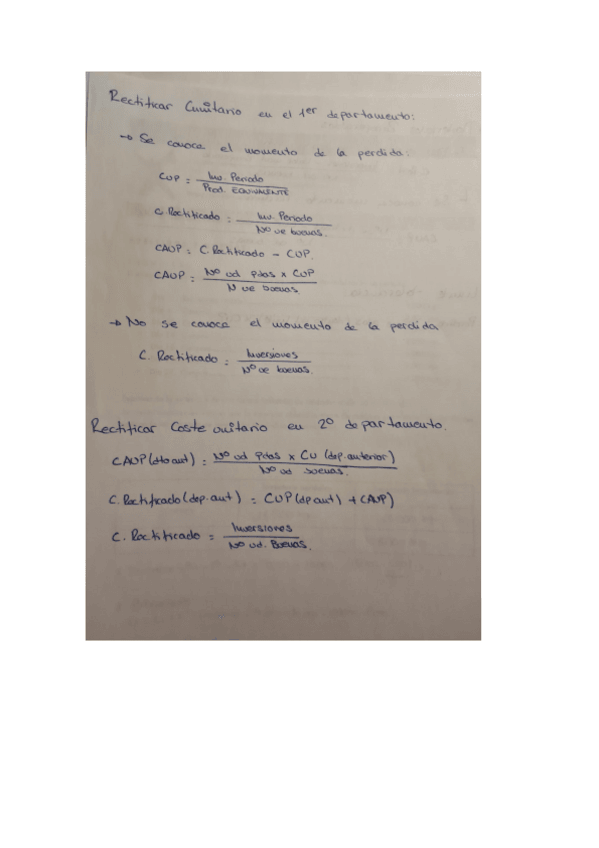 Rectificar Cunitario en el 1er departamento:
→ Se conoce el momento de la perdida:
CUP = Inv. Periodo / Prod. EQUIVALENTE
C. Rectificado = Inv. Periodo / Nº ue buenas.
CAUP = C. Rectificado - CUP.
CAUP = Nº ud pdas x CUP / N ue buenas.
→ No se conoce el momento de la perdida
C. Rectificado = Inversiones / Nº ue buenas.
Rectificar Coste unitario en 2º departamento.
CAUP (dto ant) = Nº ud pdas x CU (dep. anterior) / Nº ud buenas.
C. Rectificado (dep. ant) = CUP (dp ant) + CAUP)
C. Rectificado = Inversiones / Nº ud. Buenas.